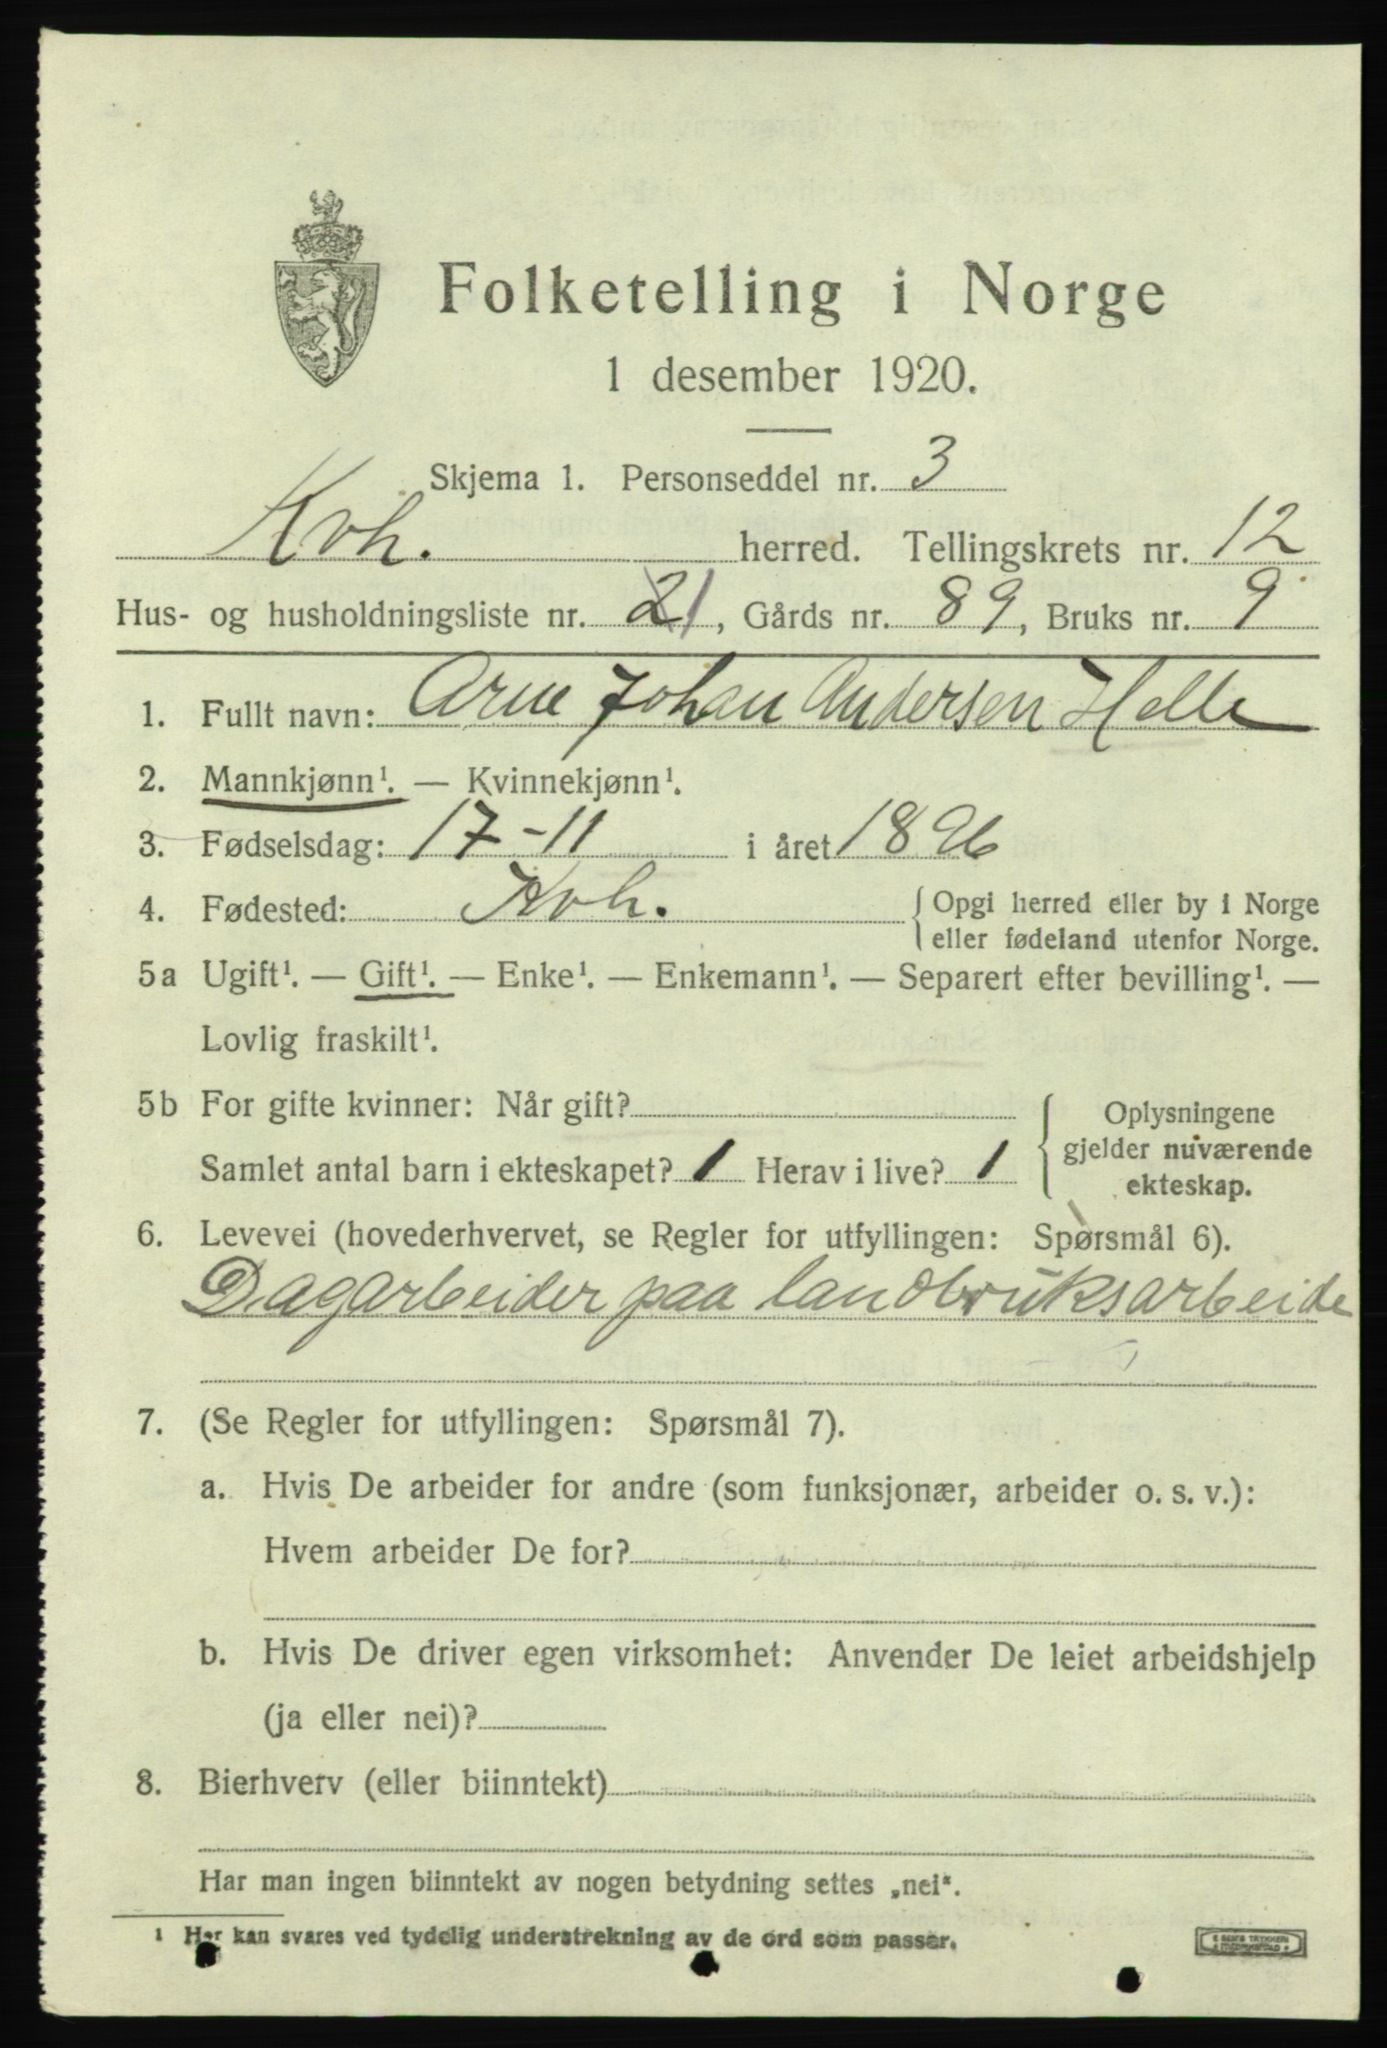 Folketelling i Norge
1 desember 1920.
Skjema 1. Personseddel nr. 3
Kvh. herred. Tellingskrets nr. 12
Hus- og husholdningsliste nr. 21, Gårds nr. 89, Bruks nr. 9
1. Fullt navn: Arne Johan Andersen Helle
2. Mannkjønn¹. — Kvinnekjønn¹.
3. Fødselsdag: 17-11 i året 1896
4. Fødested: Kvh. Opgi herred eller by i Norge
eller fødeland utenfor Norge.
5a Ugift¹. — Gift¹. — Enke¹. — Enkemann¹. — Separert efter bevilling¹. —
Lovlig fraskilt¹.
5b For gifte kvinner: Når gift?
Samlet antal barn i ekteskapet? 1 Herav i live? 1
Oplysningene
gjelder nuværende
ekteskap.
6. Levevei (hovederhvervet, se Regler for utfyllingen: Spørsmål 6).
Dagarbeider paa landbruksarbeide
7. (Se Regler for utfyllingen: Spørsmål 7).
a. Hvis De arbeider for andre (som funksjonær, arbeider o. s. v.):
Hvem arbeider De for?
b. Hvis De driver egen virksomhet: Anvender De leiet arbeidshjelp
(ja eller nei)?
8. Bierhverv (eller biinntekt)
Har man ingen biinntekt av nogen betydning settes „nei“.
¹ Her kan svares ved tydelig understrekning av de ord som passer.